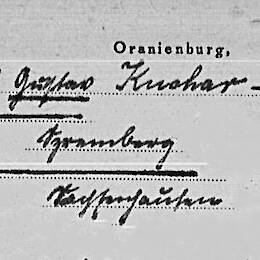 Oranienburg,
Gustav Knohar -
Spremberg
Sachsenhausen